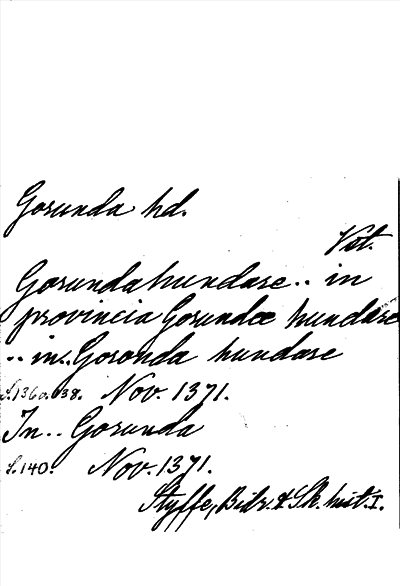 Gorunda hd.
Vst.
Gorundahundare.. in
provincia Gorundæ hundare
.. in.. Goronda hundare
S. 136 o. 138. Nov. 1371.
In.. Gorunda
S. 140. Nov. 1371.
Styffe, Bidr. t. Sk. hist. I.